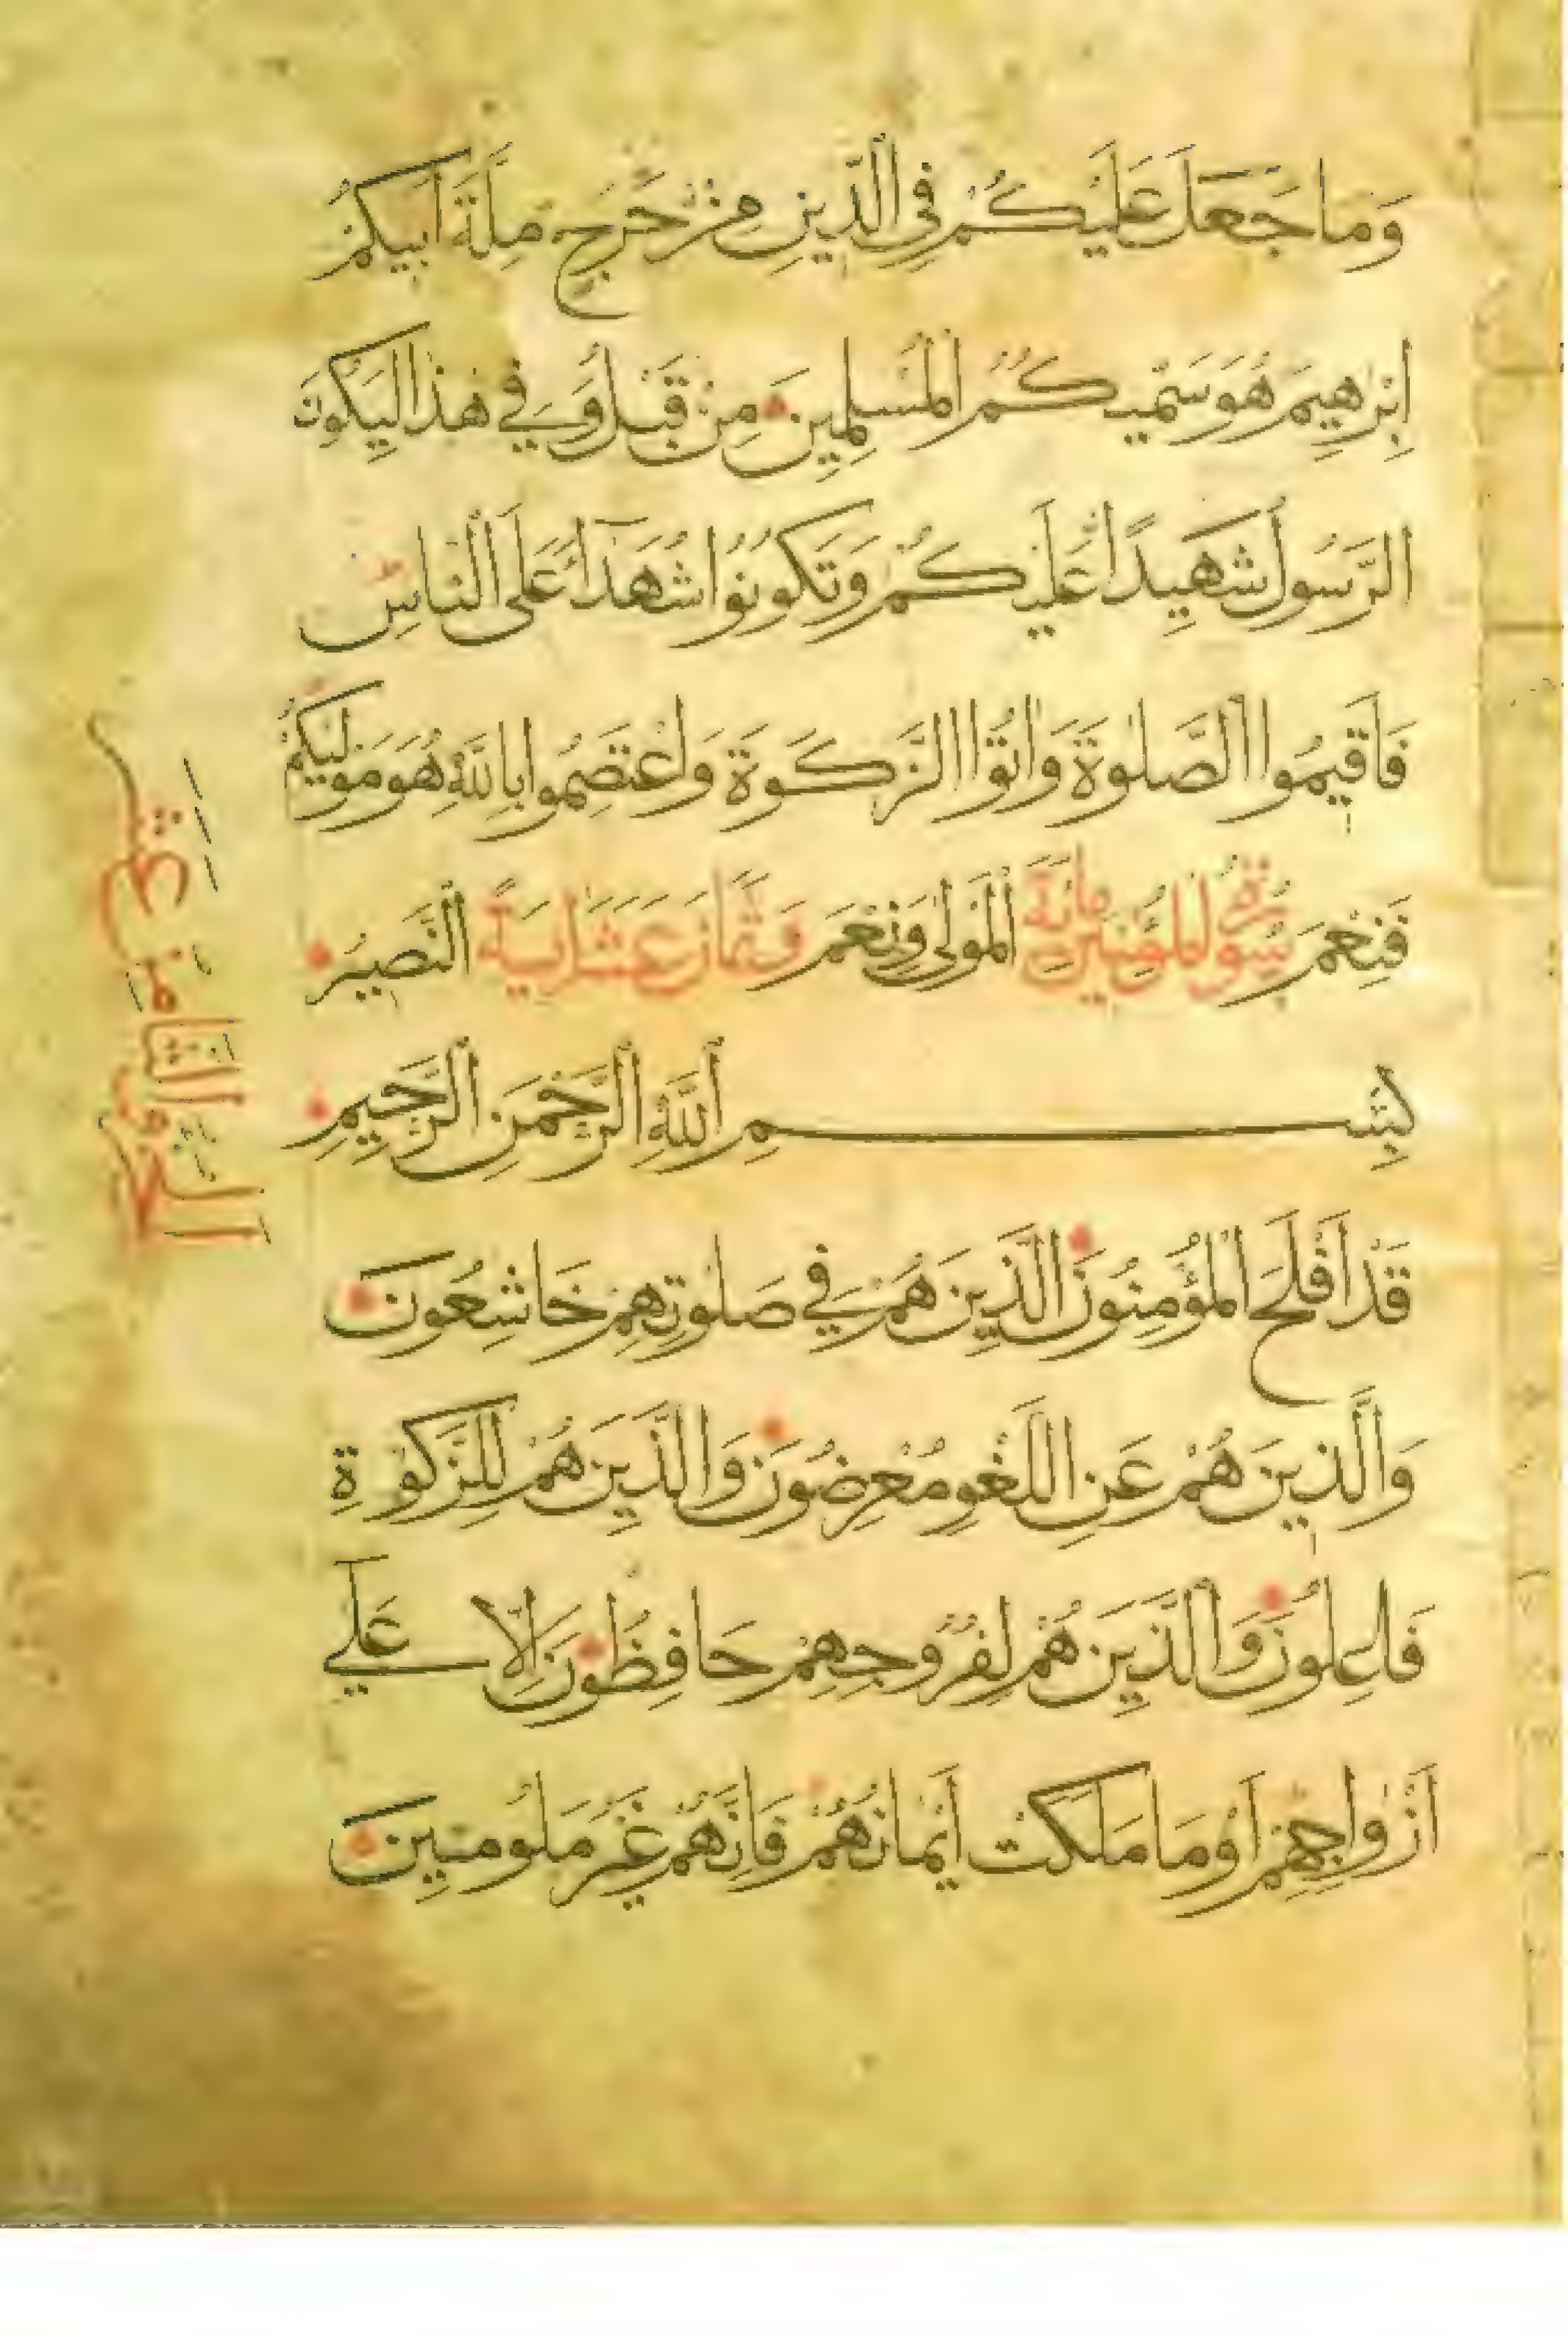 وَمَا جَعَلَ عَلَيْكُمْ فِي الدِّينِ مِنْ حَرَجٍ مِلَّةَ أَبِيكُمْ
إِبْرٰهِيمَ هُوَ سَمّٰيكُمُ الْمُسْلِمِينَ مِنْ قَبْلُ وَفِي هٰذَا لِيَكُونَ
الرَّسُولُ شَهِيدًا عَلَيْكُمْ وَتَكُونُوا شُهَدَآءَ عَلَى النَّاسِ
فَأَقِيمُوا الصَّلٰوةَ وَاٰتُوا الزَّكَوةَ وَاعْتَصِمُوا بِاللّٰهِ هُوَ مَوْلٰيكُمْ
فَنِعْمَ سُورَةُ الْمُؤْمِنِينَ مِائَةٌ الْمَوْلٰى وَنِعْمَ وَثَمَانَ عَشَرَ اٰيَةً النَّصِيرُ
بِسْمِ اللّٰهِ الرَّحْمٰنِ الرَّحِيمِ
قَدْ أَفْلَحَ الْمُؤْمِنُونَ الَّذِينَ هُمْ فِي صَلٰوتِهِمْ خَاشِعُونَ
وَالَّذِينَ هُمْ عَنِ اللَّغْوِ مُعْرِضُونَ وَالَّذِينَ هُمْ لِلزَّكٰوةِ
فَاعِلُونَ وَالَّذِينَ هُمْ لِفُرُوجِهِمْ حَافِظُونَ إِلَّا عَلٰى
أَزْوَاجِهِمْ أَوْ مَا مَلَكَتْ أَيْمَانُهُمْ فَإِنَّهُمْ غَيْرُ مَلُومِينَ
الجزو الثامن عشر